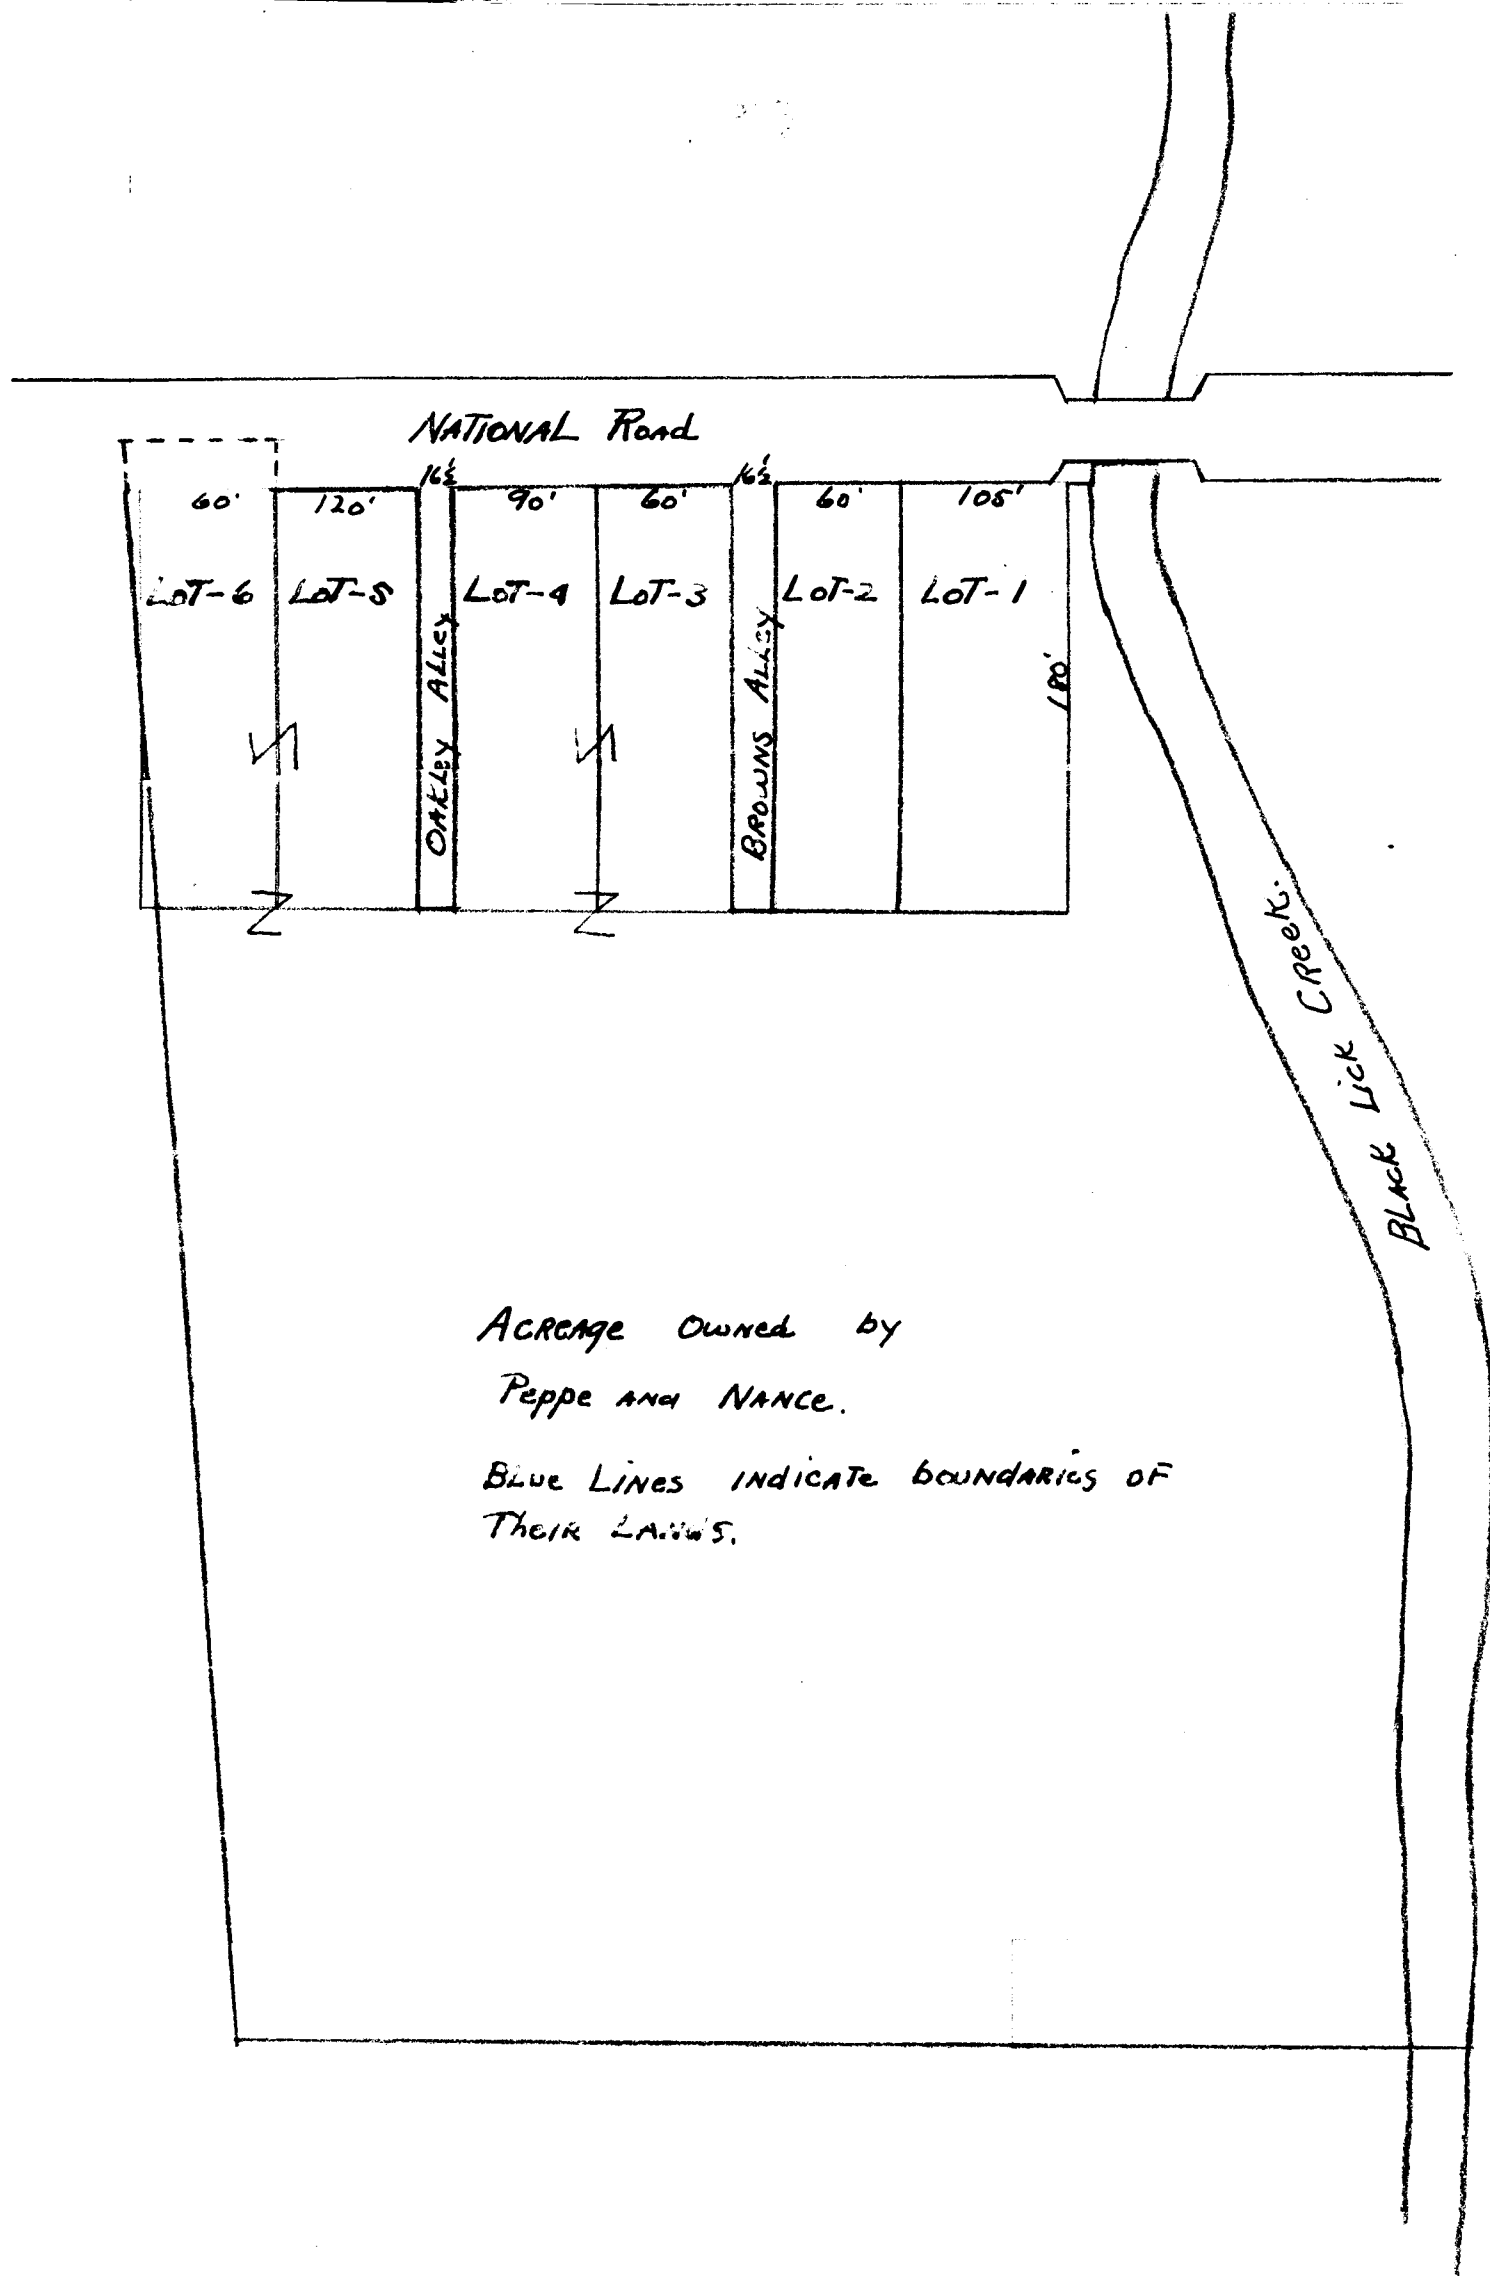 NATIONAL Road
60' 120' 16½' 90' 60' 16½' 60' 105'
LOT-6 LOT-5 LOT-4 LOT-3 LOT-2 LOT-1
OAKLEY ALLEY
BROWNS ALLEY
180'
BLACK LICK CREEK.
ACREAGE OWNED by
Peppe AND NANCE.
BLUE LINES INDICATE bOUNDARIES OF
THEIR LANDS.